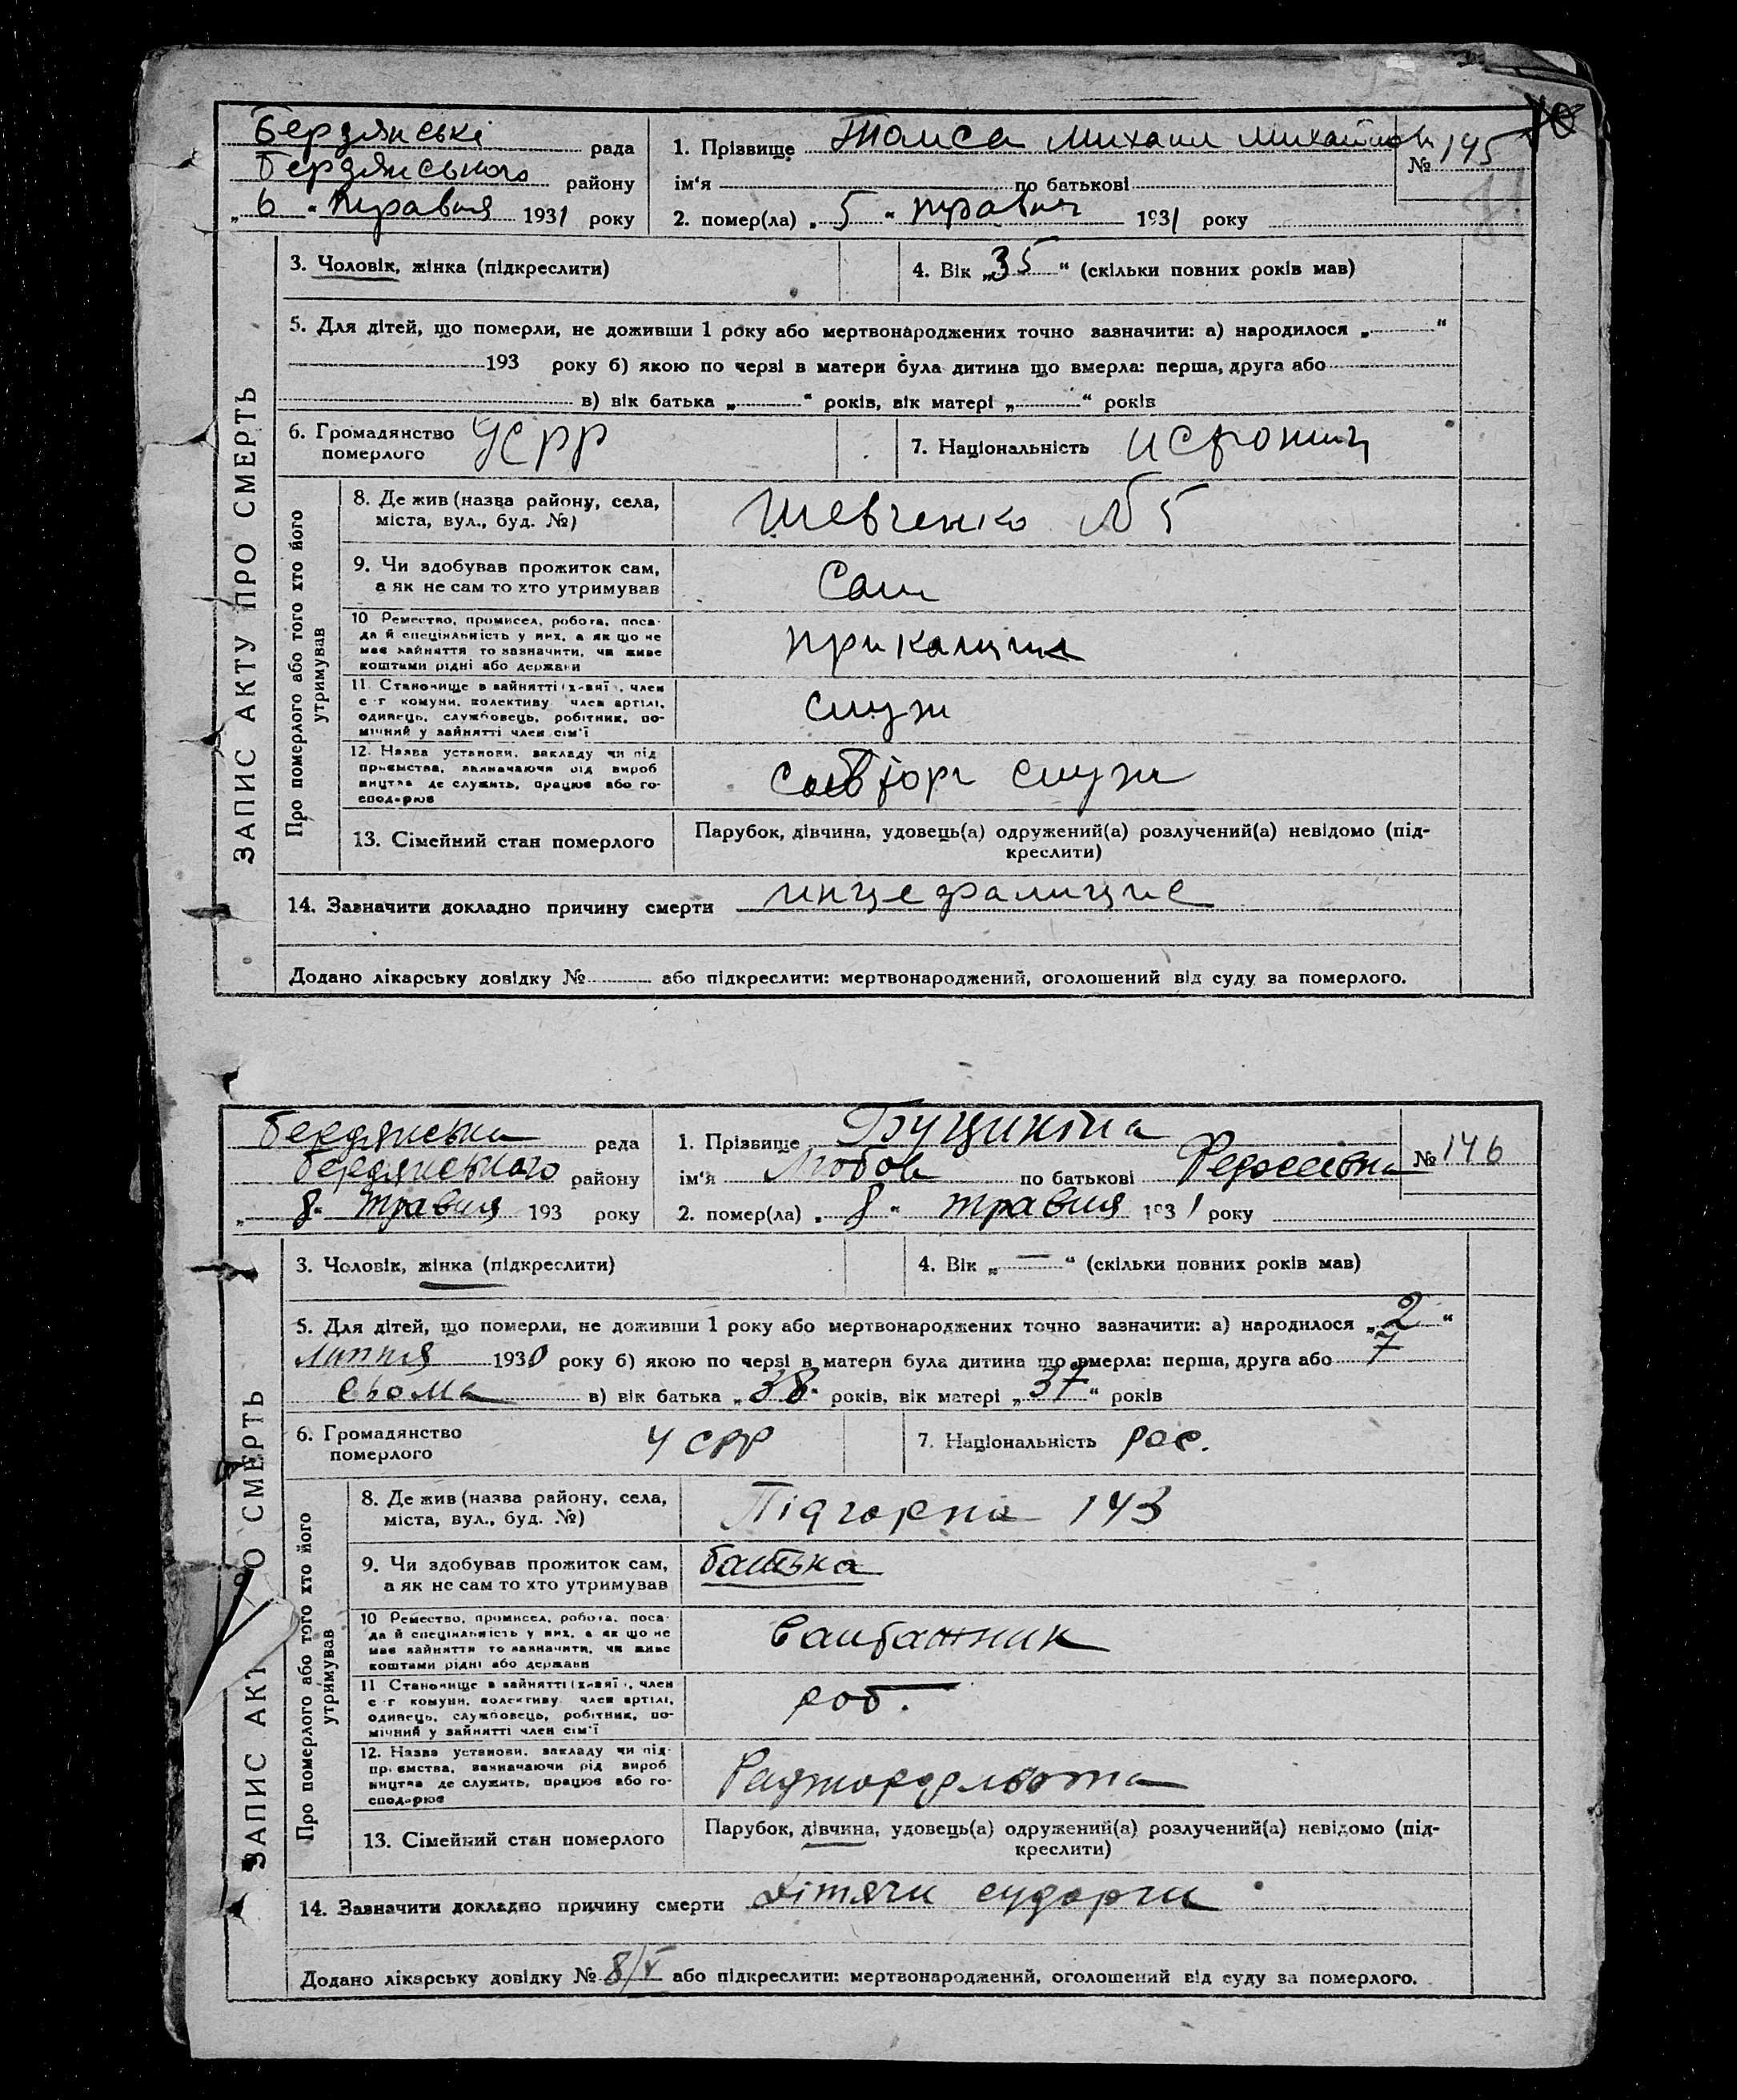 Бердянські рада
Бердянського району
„ 6 “ травня 1931 року
1. Прізвище Михаил
№ 145
ім'я по батькові
2. помер(ла) „ 5 “ травня 1931 року
ЗАПИС АКТУ ПРО СМЕРТЬ
3. Чоловік, жінка (підкреслити)
4. Вік „35“ (скільки повних років мав)
5. Для дітей, що померли, не доживши 1 року або мертвонароджених точно зазначити: а) народилося „ “
193 року б) якою по черзі в матери була дитина що вмерла: перша, друга або
в) вік батька „ “ років, вік матері „ “ років
6. Громадянство
померлого
УСРР
7. Національність
Про померлого або того хто його
утримував
8. Де жив (назва району, села,
міста, вул., буд. №)
Шевченко № 5
9. Чи здобував прожиток сам,
а як не сам то хто утримував
Сам
10 Ремество, промисел, робота, поса-
да й спеціяльність у них, а як що не
має зайняття то зазначити, чи живе
коштами рідні або держави
11. Становище в зайнятті (х-вяї), член
с-г комуни, колективу член артілі,
одинець, службовець, робітник, по-
мічний у зайнятті член сім'ї
служ
12. Назва установи, закладу чи під
приємства, зазначаючи рід вироб
ництва де служить, працює або го-
сподарює
служ
13. Сімейний стан померлого
Парубок, дівчина, удовець(а) одружений(а) розлучений(а) невідомо (під-
креслити)
14. Зазначити докладно причину смерти
Додано лікарську довідку № або підкреслити: мертвонароджений, оголошений від суду за померлого.
Бердянська рада
Бердянського району
„ 8 “ травня 193 року
1. Прізвище
№ 146
ім'я Любов по батькові
2. помер(ла) „ 8 “ травня 1931 року
ЗАПИС АКТ О СМЕРТЬ
3. Чоловік, жінка (підкреслити)
4. Вік „—“ (скільки повних років мав)
5. Для дітей, що померли, не доживши 1 року або мертвонароджених точно зазначити: а) народилося „ 2 “
липня 1930 року б) якою по черзі в матери була дитина що вмерла: перша, друга або 7
сьома в) вік батька „38“ років, вік матері „37“ років
6. Громадянство
померлого
УСРР
7. Національність рос.
Про померлого або того хто його
утримував
8. Де жив (назва району, села,
міста, вул., буд. №)
Підгорна 143
9. Чи здобував прожиток сам,
а як не сам то хто утримував
батька
10 Ремество, промисел, робота, поса-
да й спеціяльність у них, а як що не
має зайняття то зазначити, чи живе
коштами рідні або держави
11 Становище в зайнятті (х-вяї), член
с-г комуни, колективу член артілі,
одинець, службовець, робітник, по-
мічний у зайнятті член сім'ї
роб.
12. Назва установи, закладу чи під-
приємства, зазначаючи рід вироб
ництва де служить, працює або го-
сподарює
13. Сімейний стан померлого
Парубок, дівчина, удовець(а) одружений(а) розлучений(а) невідомо (під-
креслити)
14. Зазначити докладно причину смерти дітячи судорги
Додано лікарську довідку № 8/V або підкреслити: мертвонароджений, оголошений від суду за померлого.